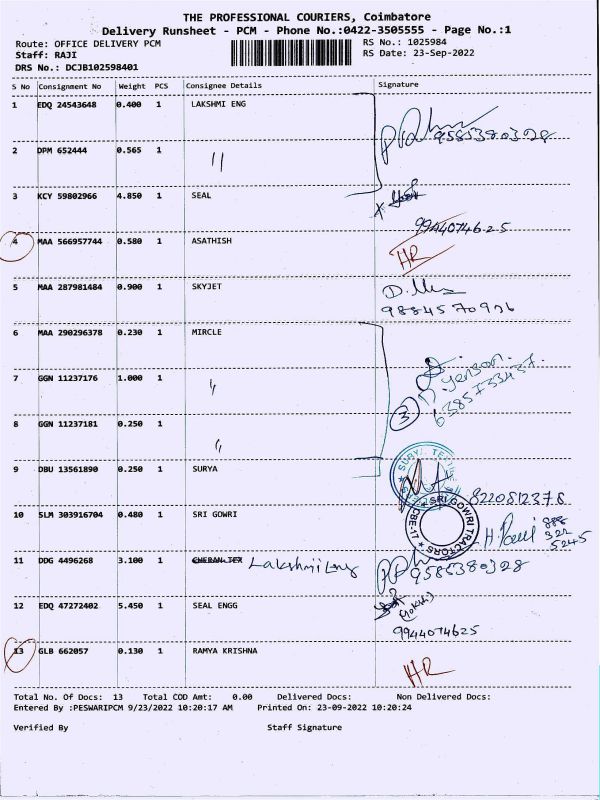 THE PROFESSIONAL COURIERS, Coimbatore
Delivery Runsheet - PCM - Phone No.:0422-3505555 - Page No.:1
Route: OFFICE DELIVERY PCM
Staff: RAJI
DRS No.: DCJB102598401
RS No.: 1025984
RS Date: 23-Sep-2022
S No Consignment No Weight PCS Consignee Details Signature
1 EDQ 24543648 0.400 1 LAKSHMI ENG
9585380328
2 DPM 652444 0.565 1 "
3 KCY 59802966 4.850 1 SEAL
9944074625
4 MAA 566957744 0.580 1 ASATHISH HR
5 MAA 287981484 0.900 1 SKYJET
9884570976
6 MAA 290296378 0.230 1 MIRCLE
7 GGN 11237176 1.000 1 "
3
6385733437
8 GGN 11237181 0.250 1 "
9 DBU 13561890 0.250 1 SURYA
8220812378
10 SLM 303916704 0.480 1 SRI GOWRI
SRI GOWRI TRACTORS
888
322
5245
11 DDG 4496268 3.100 1 CHERAN TEX Lakshmi Eng
9585380328
12 EDQ 47272402 5.450 1 SEAL ENGG
9944074625
13 GLB 662057 0.130 1 RAMYA KRISHNA HR
Total No. Of Docs: 13 Total COD Amt: 0.00 Delivered Docs: Non Delivered Docs:
Entered By :PESWARIPCM 9/23/2022 10:20:17 AM Printed On: 23-09-2022 10:20:24
Verified By Staff Signature